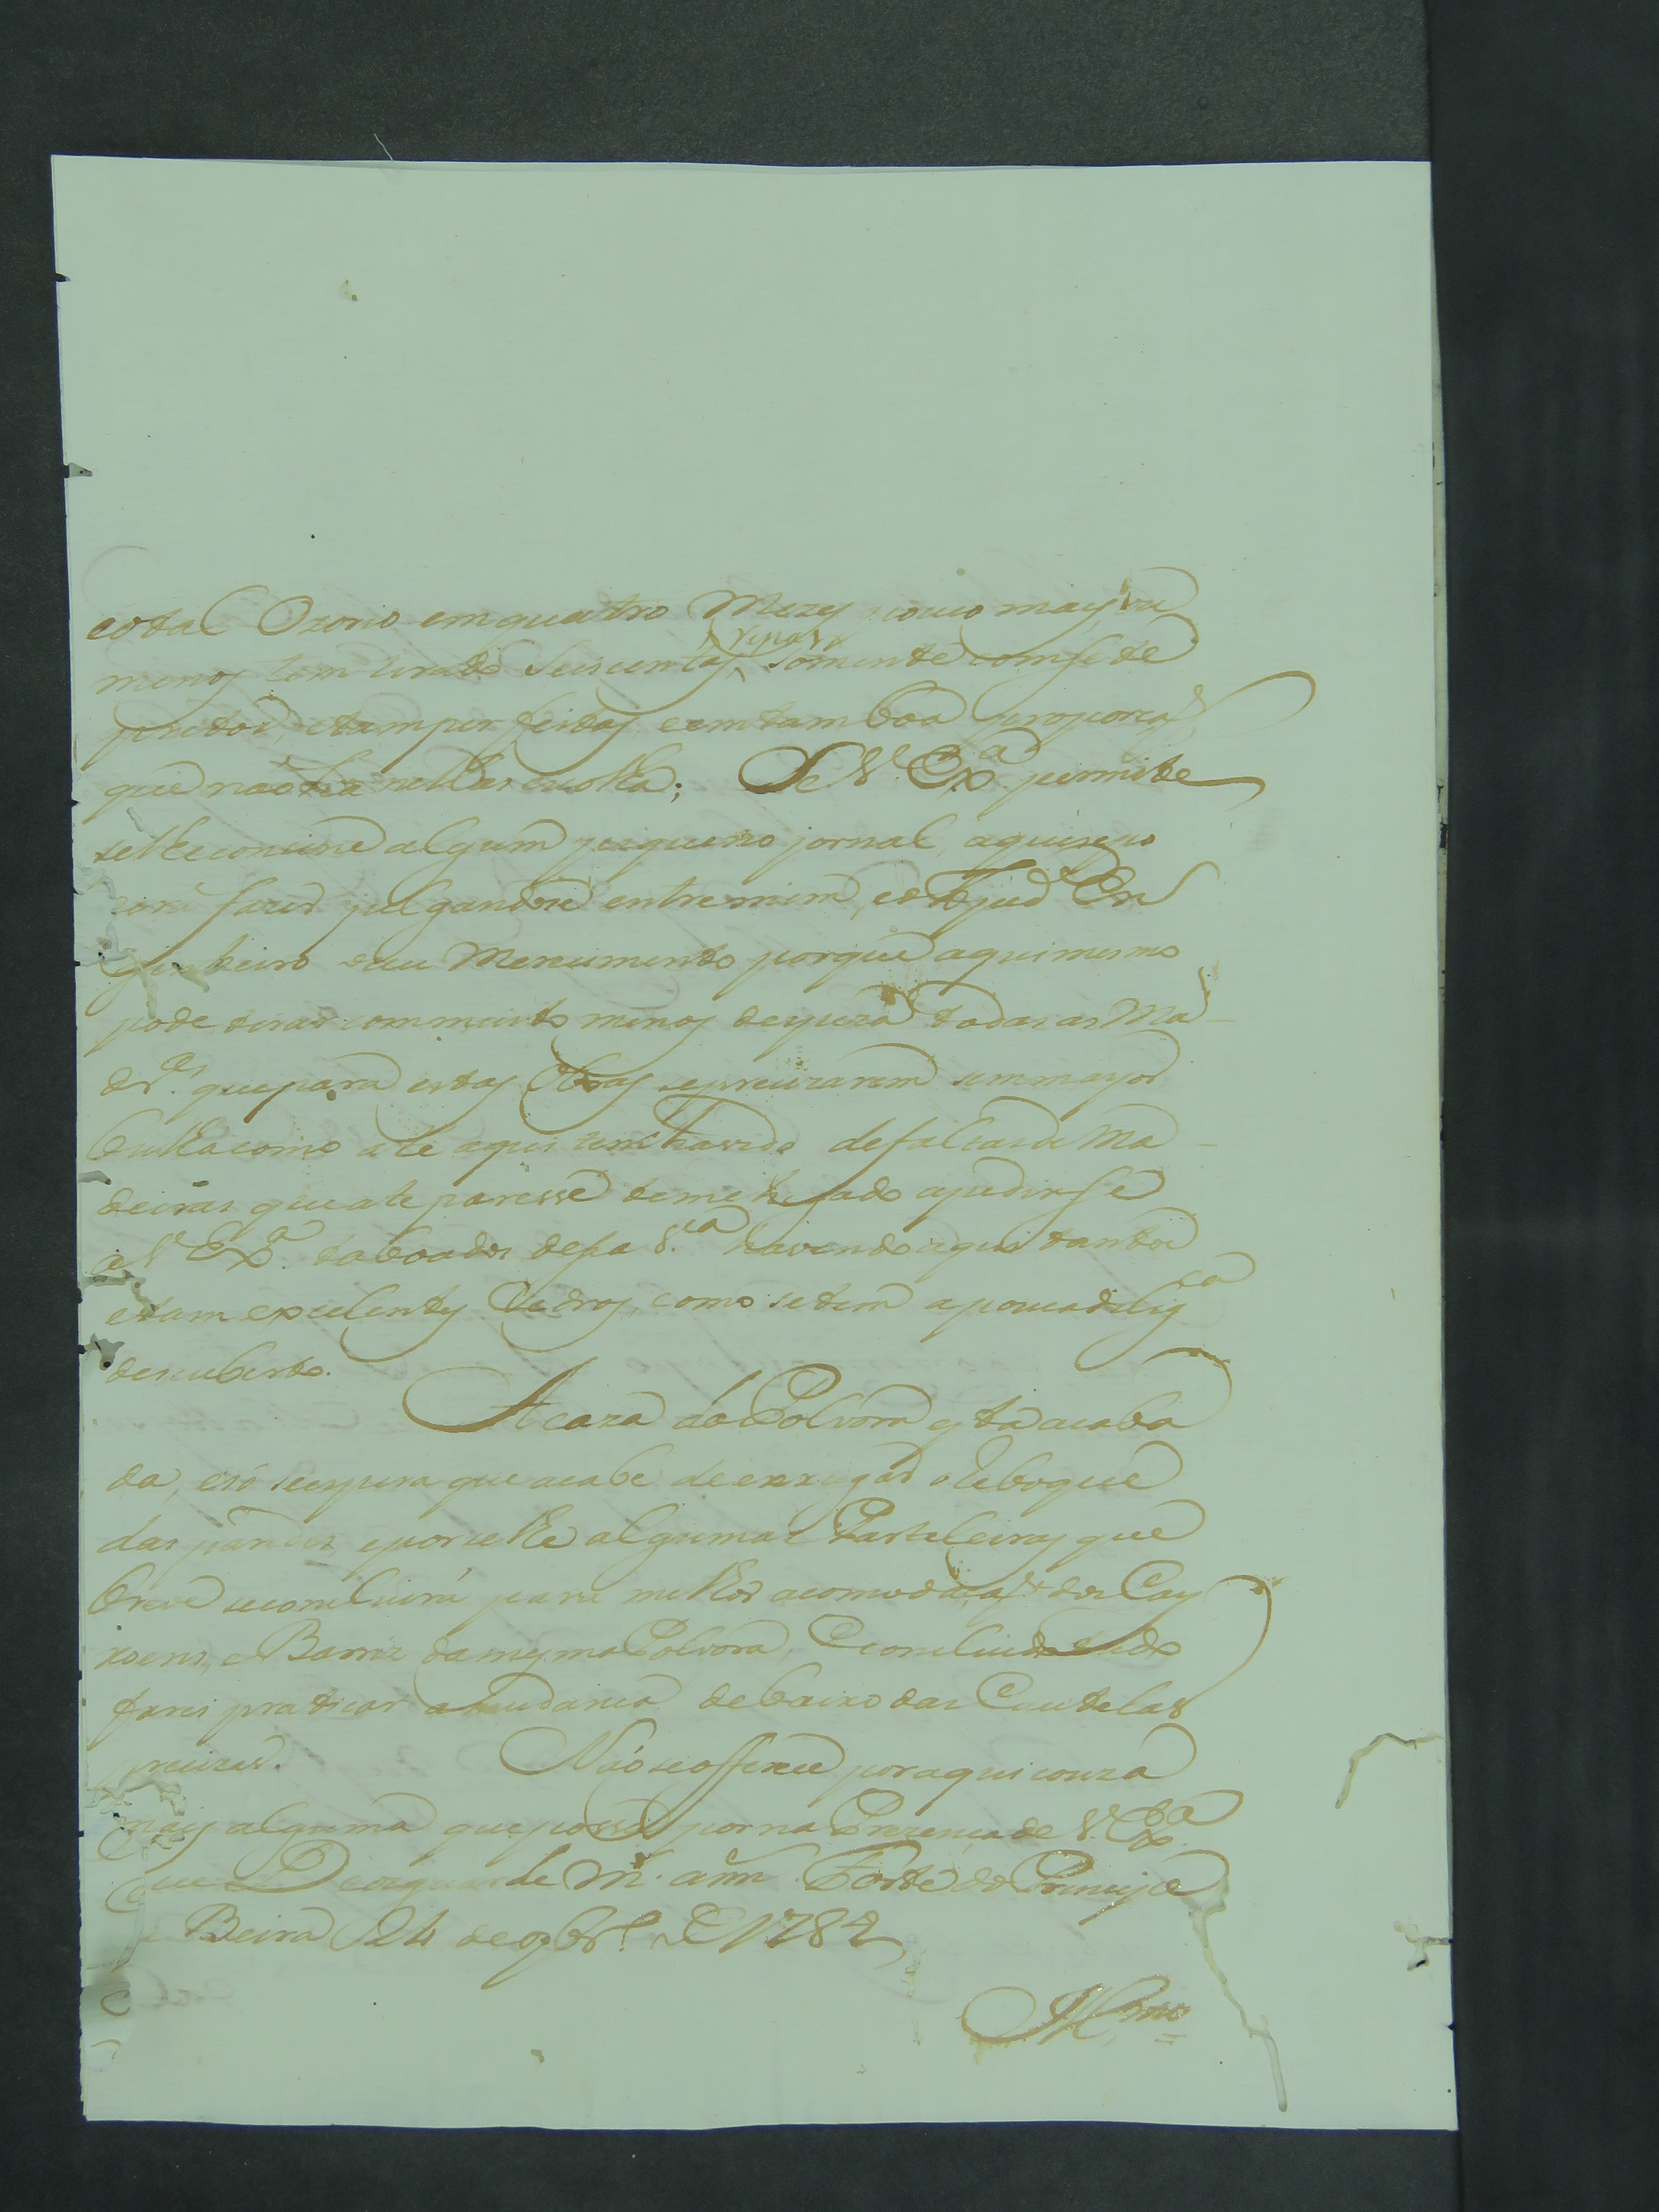 eotal Ozorio emquatro Mezes pouco mais, ou
menos tem tirado seiscentas ripas somente com sete
pretos, etamper feitas, eemtamboa proporcaõ,
que naõ ha nellas escolha; Se V. Exª permite
selheconsine algum piqueno jornal, aquiseno
fares julgandose entre mim, eo Ajud.e En
genheiro seu Merecimento porque aquimesmo
pode tirar commuito menos despeza todas as Ma
dr.as que para estas Obras seprecizarem semmayor
bulha como ate aqui temhavido defaltar de Ma
deiras que ate paresse temechegado apedirse
a V. Exª taboados dessa V.ca havendo aqui tantos
etam excelentes Cedros, como setem apoucadilig.ca
descuberto.
A caza da Polvora esta acaba
da, esó seespera que acabe de enxugar o Reboque
das paredes eporselhe algumas Parteleiras que
breve seconcluirá para milhor acomodaçaõ dos Cay
xoens, e Barriz da mesma Polvora, Econcluido tudo
farei praticar a mudansa debaixo das Cautelas
precizas. Nâo seoffrece por aqui couza
mais alguma que possa por na Prezença de V. Exª
que Deos guarde m.s ann.s Forte do Principe
Beira 24 de 9br.º de 1782
Ill.mo